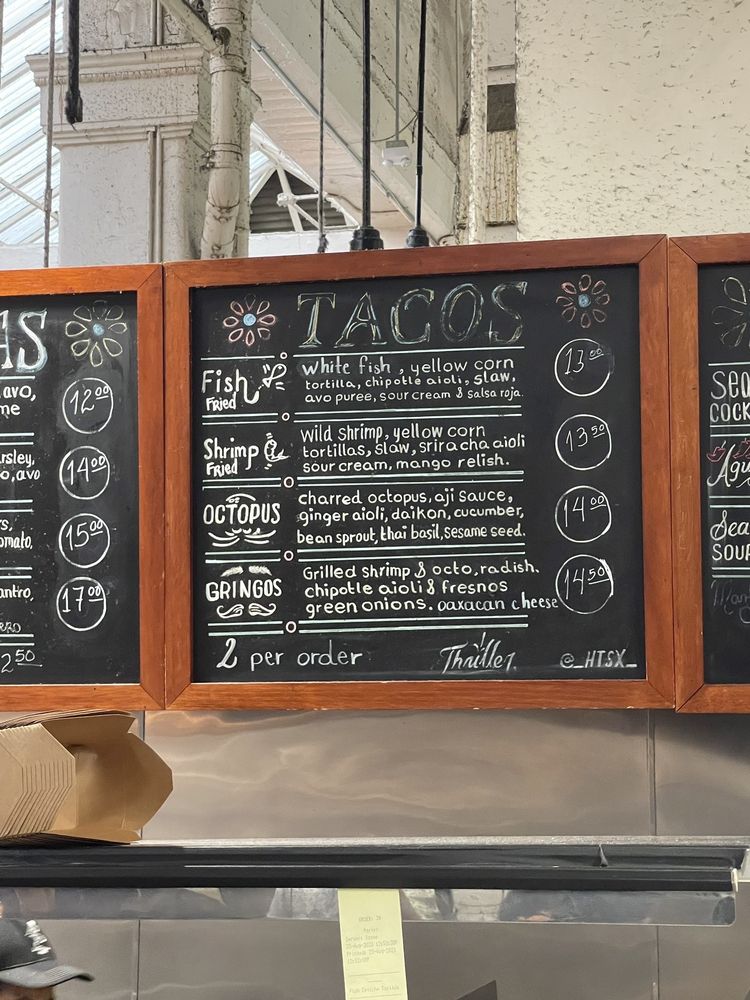 AS
avo,
me
12⁰⁰
14⁰⁰
o,avo
15⁰⁰
17⁰⁰
2⁵⁰
TACOS
Fish
Fried
white fish, yellow corn
tortilla, chipotle aioli, slaw,
avo puree, sour cream & salsa roja.
13⁰⁰
Shrimp
Fried
Wild shrimp, yellow corn
tortillas, slaw, sriracha aioli
sour cream, mango relish.
13⁵⁰
OCTOPUS
charred octopus, aji sauce,
ginger aioli, daikon, cucumber,
bean sprout, thai basil, sesame seed.
14⁰⁰
GRINGOS
Grilled shrimp & octo, radish.
chipotle aioli & fresnos
green onions. oaxacan cheese
14⁵⁰
2 per order
Thriller
@_HTSX_
SEA
COCK
Agu
Sea
SOUP